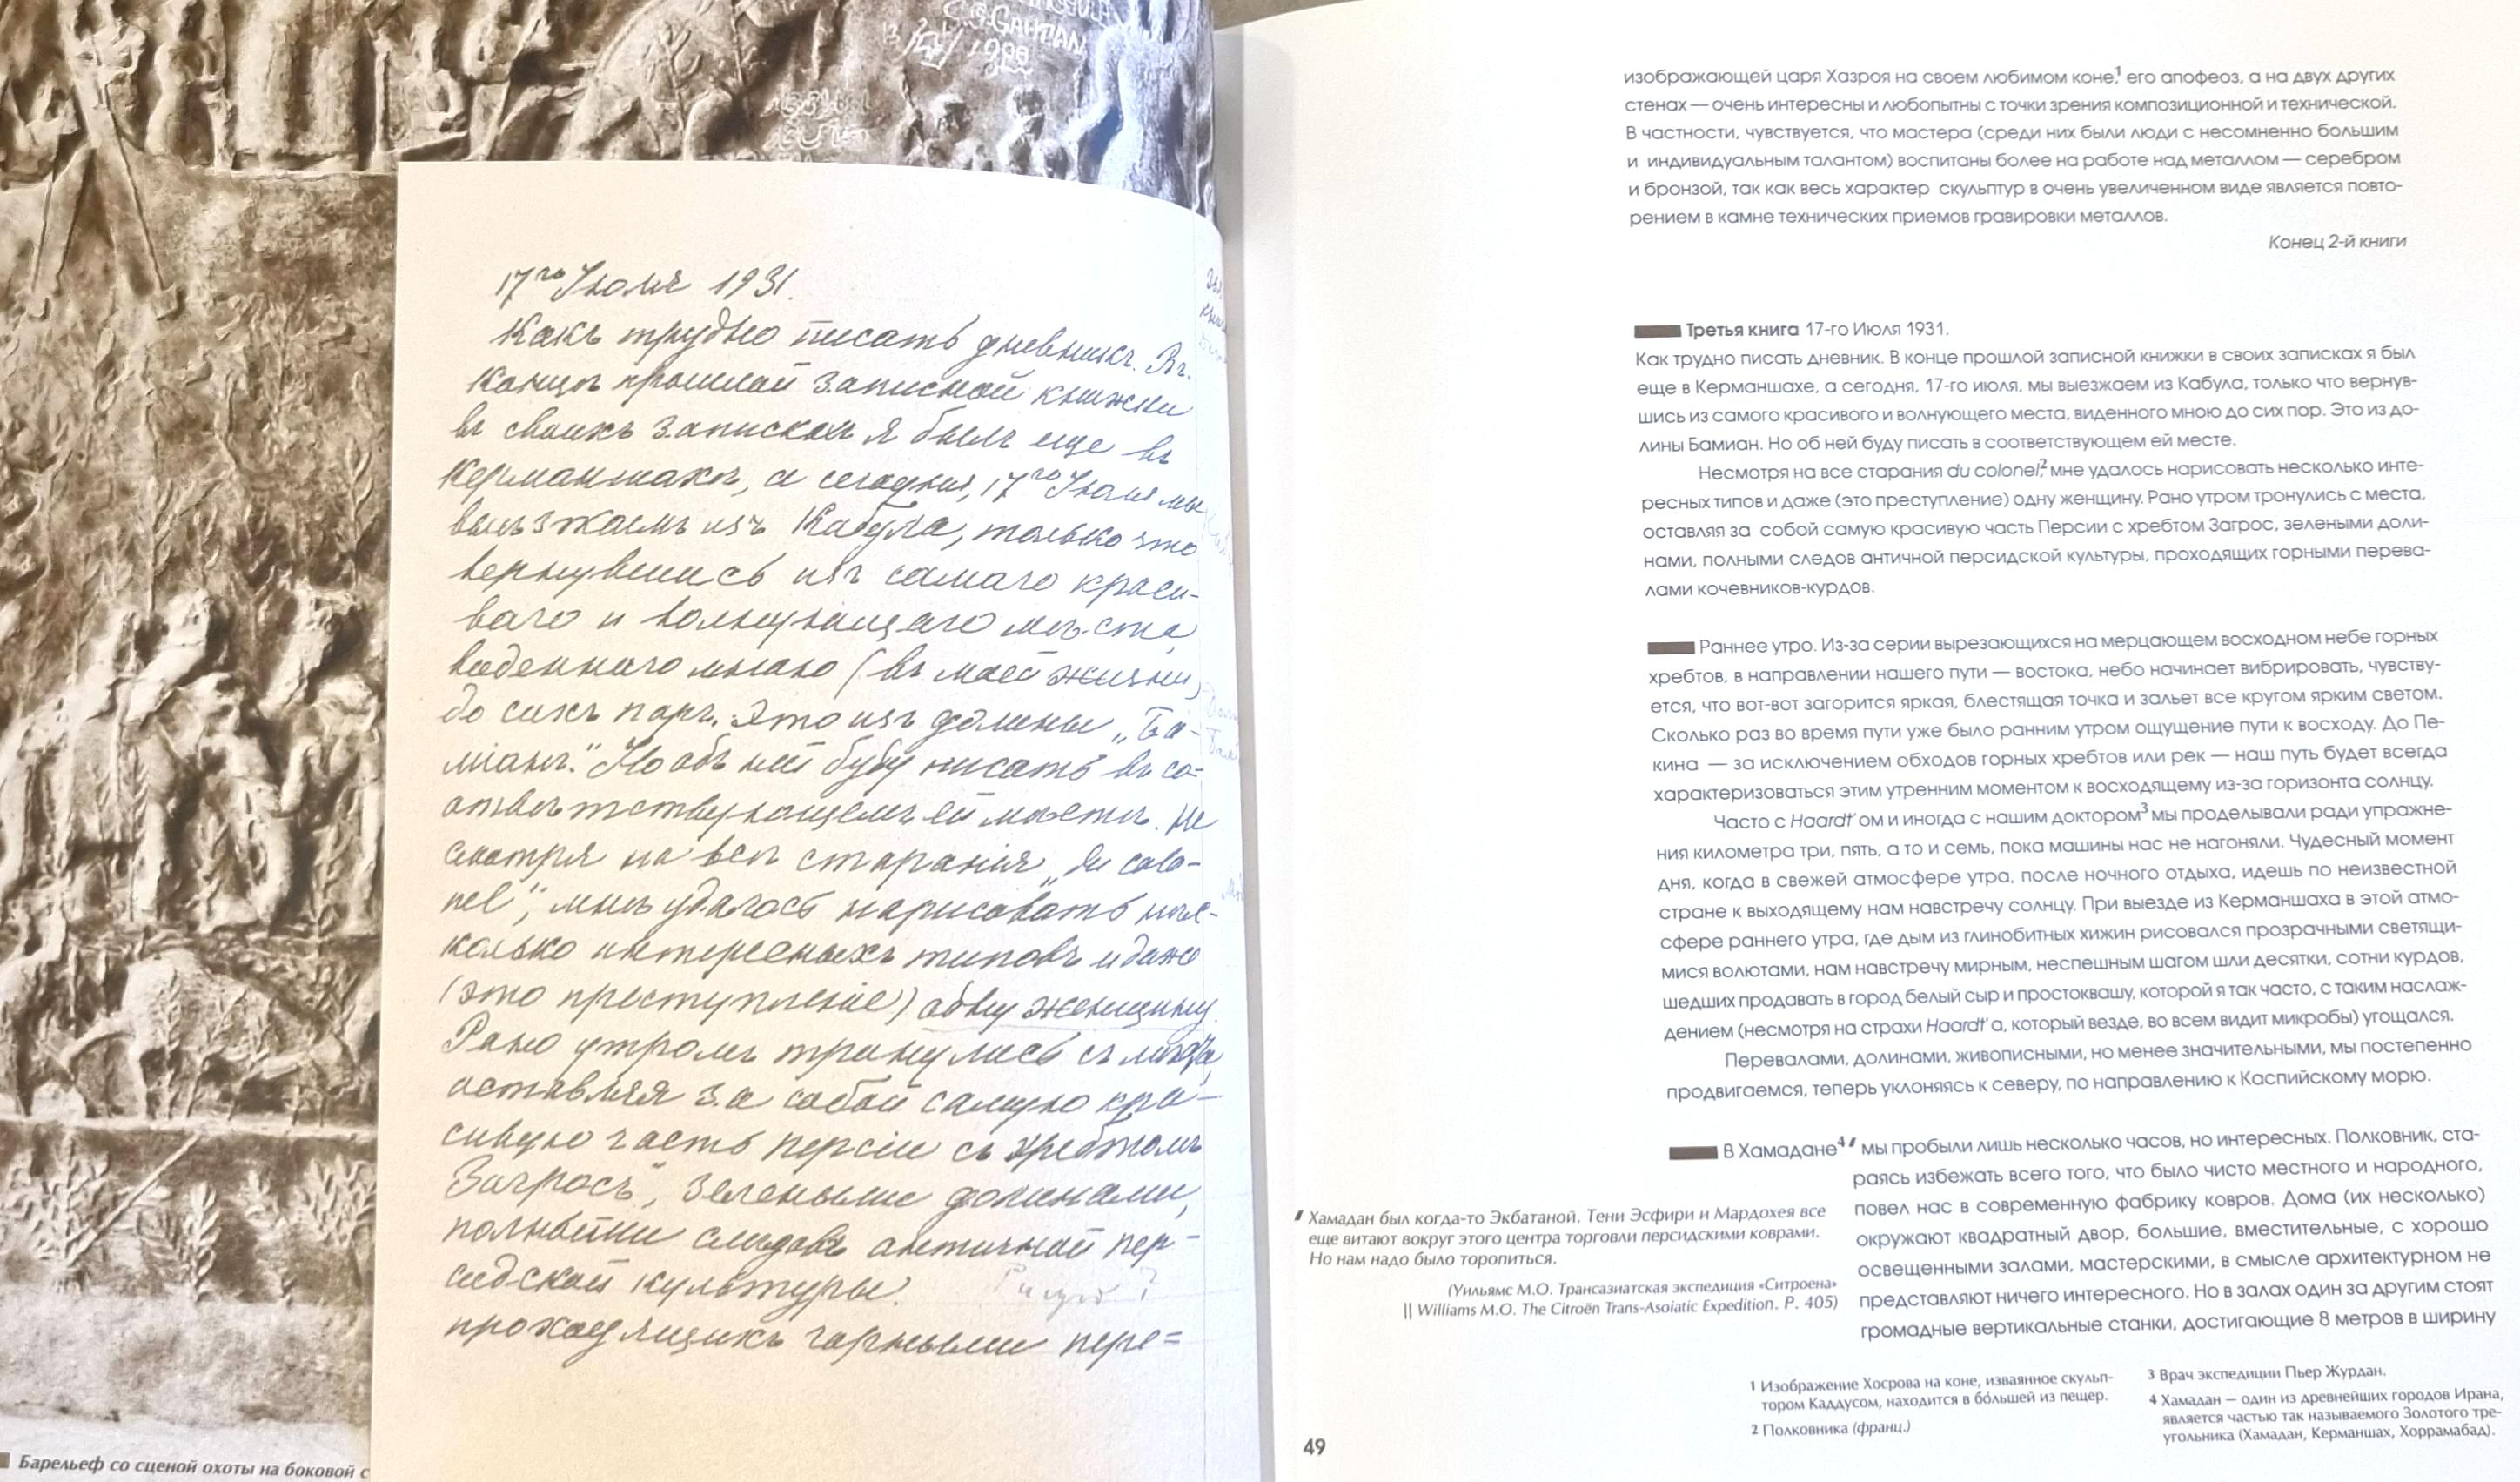 C.G. GANTIAN
1908
17го Iюля 1931.
Какъ трудно писать дневникъ. Въ
концѣ прошлой записной книжки
въ своихъ запискахъ я былъ еще въ
Керманшахѣ, а сегодня, 17го Iюля мы
выѣзжаемъ изъ Кабула, только что
вернувшись изъ самаго краси-
ваго и волнующаго мѣста,
виденнаго мною (въ моей жизни)
до сихъ поръ. Это изъ долины „Ба-
мiанъ". Но объ ней буду писать въ со-
отвѣтствующемъ ей мѣстѣ. Не
смотря на всѣ старанiя „du colo-
nel", мнѣ удалось нарисовать нѣс-
колько интересныхъ типовъ и даже
(это преступленiе) одну женщину.
Рано утромъ тронулись съ мѣста,
оставляя за собой самую кра-
сивую часть Персiи съ хребтомъ
Загросъ", зелеными долинами,
полными слѣдовъ античной пер-
сидской культуры.
проходящихъ горными пере=
Барельеф со сценой охоты на боковой с
изображающей царя Хазроя на своем любимом коне,¹ его апофеоз, а на двух других
стенах — очень интересны и любопытны с точки зрения композиционной и технической.
В частности, чувствуется, что мастера (среди них были люди с несомненно большим
и индивидуальным талантом) воспитаны более на работе над металлом — серебром
и бронзой, так как весь характер скульптур в очень увеличенном виде является повто-
рением в камне технических приемов гравировки металлов.
Конец 2-й книги
Третья книга 17-го Июля 1931.
Как трудно писать дневник. В конце прошлой записной книжки в своих записках я был
еще в Керманшахе, а сегодня, 17-го июля, мы выезжаем из Кабула, только что вернув-
шись из самого красивого и волнующего места, виденного мною до сих пор. Это из до-
лины Бамиан. Но об ней буду писать в соответствующем ей месте.
Несмотря на все старания du colonel,² мне удалось нарисовать несколько инте-
ресных типов и даже (это преступление) одну женщину. Рано утром тронулись с места,
оставляя за собой самую красивую часть Персии с хребтом Загрос, зелеными доли-
нами, полными следов античной персидской культуры, проходящих горными перева-
лами кочевников-курдов.
Раннее утро. Из-за серии вырезающихся на мерцающем восходном небе горных
хребтов, в направлении нашего пути — востока, небо начинает вибрировать, чувству-
ется, что вот-вот загорится яркая, блестящая точка и зальет все кругом ярким светом.
Сколько раз во время пути уже было ранним утром ощущение пути к восходу. До Пе-
кина — за исключением обходов горных хребтов или рек — наш путь будет всегда
характеризоваться этим утренним моментом к восходящему из-за горизонта солнцу.
Часто с Haardt'ом и иногда с нашим доктором³ мы проделывали ради упражне-
ния километра три, пять, а то и семь, пока машины нас не нагоняли. Чудесный момент
дня, когда в свежей атмосфере утра, после ночного отдыха, идешь по неизвестной
стране к выходящему нам навстречу солнцу. При выезде из Керманшаха в этой атмо-
сфере раннего утра, где дым из глинобитных хижин рисовался прозрачными светящи-
мися волютами, нам навстречу мирным, неспешным шагом шли десятки, сотни курдов,
шедших продавать в город белый сыр и простоквашу, которой я так часто, с таким наслаж-
дением (несмотря на страхи Haardt'а, который везде, во всем видит микробы) угощался.
Перевалами, долинами, живописными, но менее значительными, мы постепенно
продвигаемся, теперь уклоняясь к северу, по направлению к Каспийскому морю.
В Хамадане⁴ мы пробыли лишь несколько часов, но интересных. Полковник, ста-
раясь избежать всего того, что было чисто местного и народного,
повел нас в современную фабрику ковров. Дома (их несколько)
окружают квадратный двор, большие, вместительные, с хорошо
освещенными залами, мастерскими, в смысле архитектурном не
представляют ничего интересного. Но в залах один за другим стоят
громадные вертикальные станки, достигающие 8 метров в ширину
Хамадан был когда-то Экбатаной. Тени Эсфири и Мардохея все
еще витают вокруг этого центра торговли персидскими коврами.
Но нам надо было торопиться.
(Уильямс М.О. Трансазиатская экспедиция «Ситроена»
|| Williams M.O. The Citroën Trans-Asoiatic Expedition. P. 405)
1 Изображение Хосрова на коне, изваянное скульп-
тором Каддусом, находится в бо́льшей из пещер.
2 Полковника (франц.)
3 Врач экспедиции Пьер Журдан.
4 Хамадан — один из древнейших городов Ирана,
является частью так называемого Золотого тре-
угольника (Хамадан, Керманшах, Хоррамабад).
49